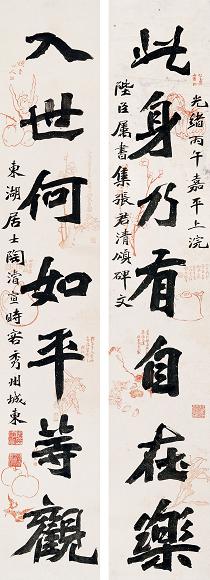 此身乃有自在樂
光緒丙午嘉平上浣
陛臣属書集張君清頌碑文
入世何如平等觀
東湖居士陶濬宣時客秀州城東